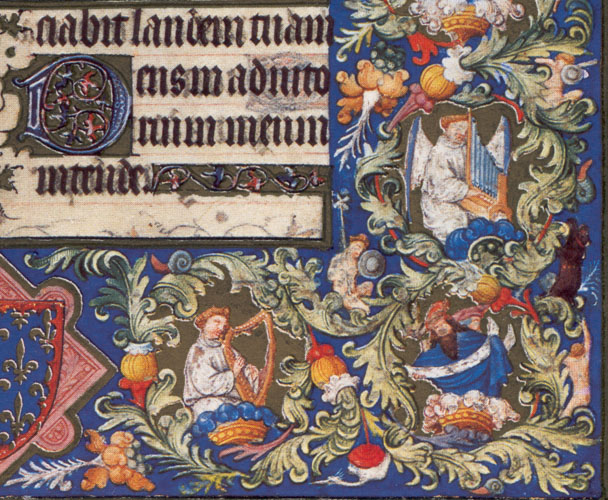 ciabit laudem tuam
Deus in adiuto
rium meum
intende.